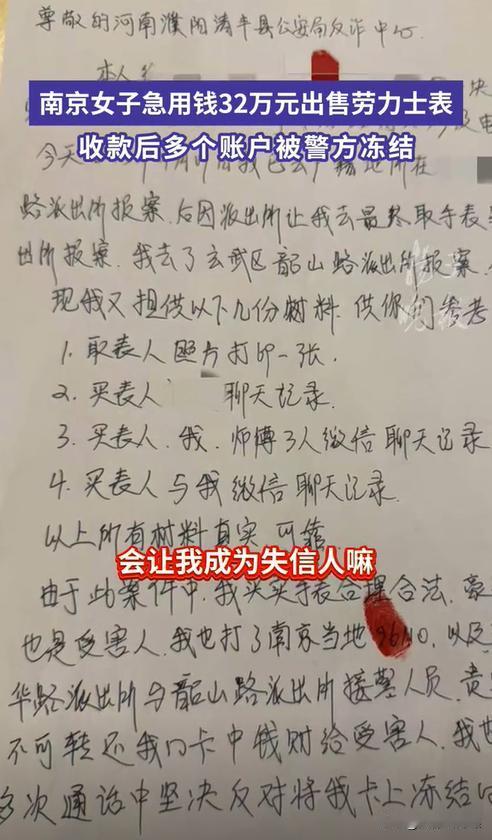 尊敬的河南濮阳清丰县公安局反诈中心
本人
南京女子急用钱32万元出售劳力士表
收款后多个账户被警方冻结
今天
路派出所报案.后因派出所让我去最终取手表
出所报案.我去了玄武区韶山路派出所报案.
现我又提供以下几份材料.供你们参考
1. 取表人照片打印一张.
2. 买表人 聊天记录.
3. 买表人.我.师傅3人微信聊天记录
4. 买表人与我微信聊天记录.
以上所有材料真实可靠
会让我成为失信人嘛
由于此案件中.我买卖手表合理合法.
也是受害人.我也打了南京当地96110.以及
华路派出所与韶山路派出所接警人员.贵
不可转还我们卡中钱财给受害人.我也
多次通话中坚决反对将我卡上冻结的